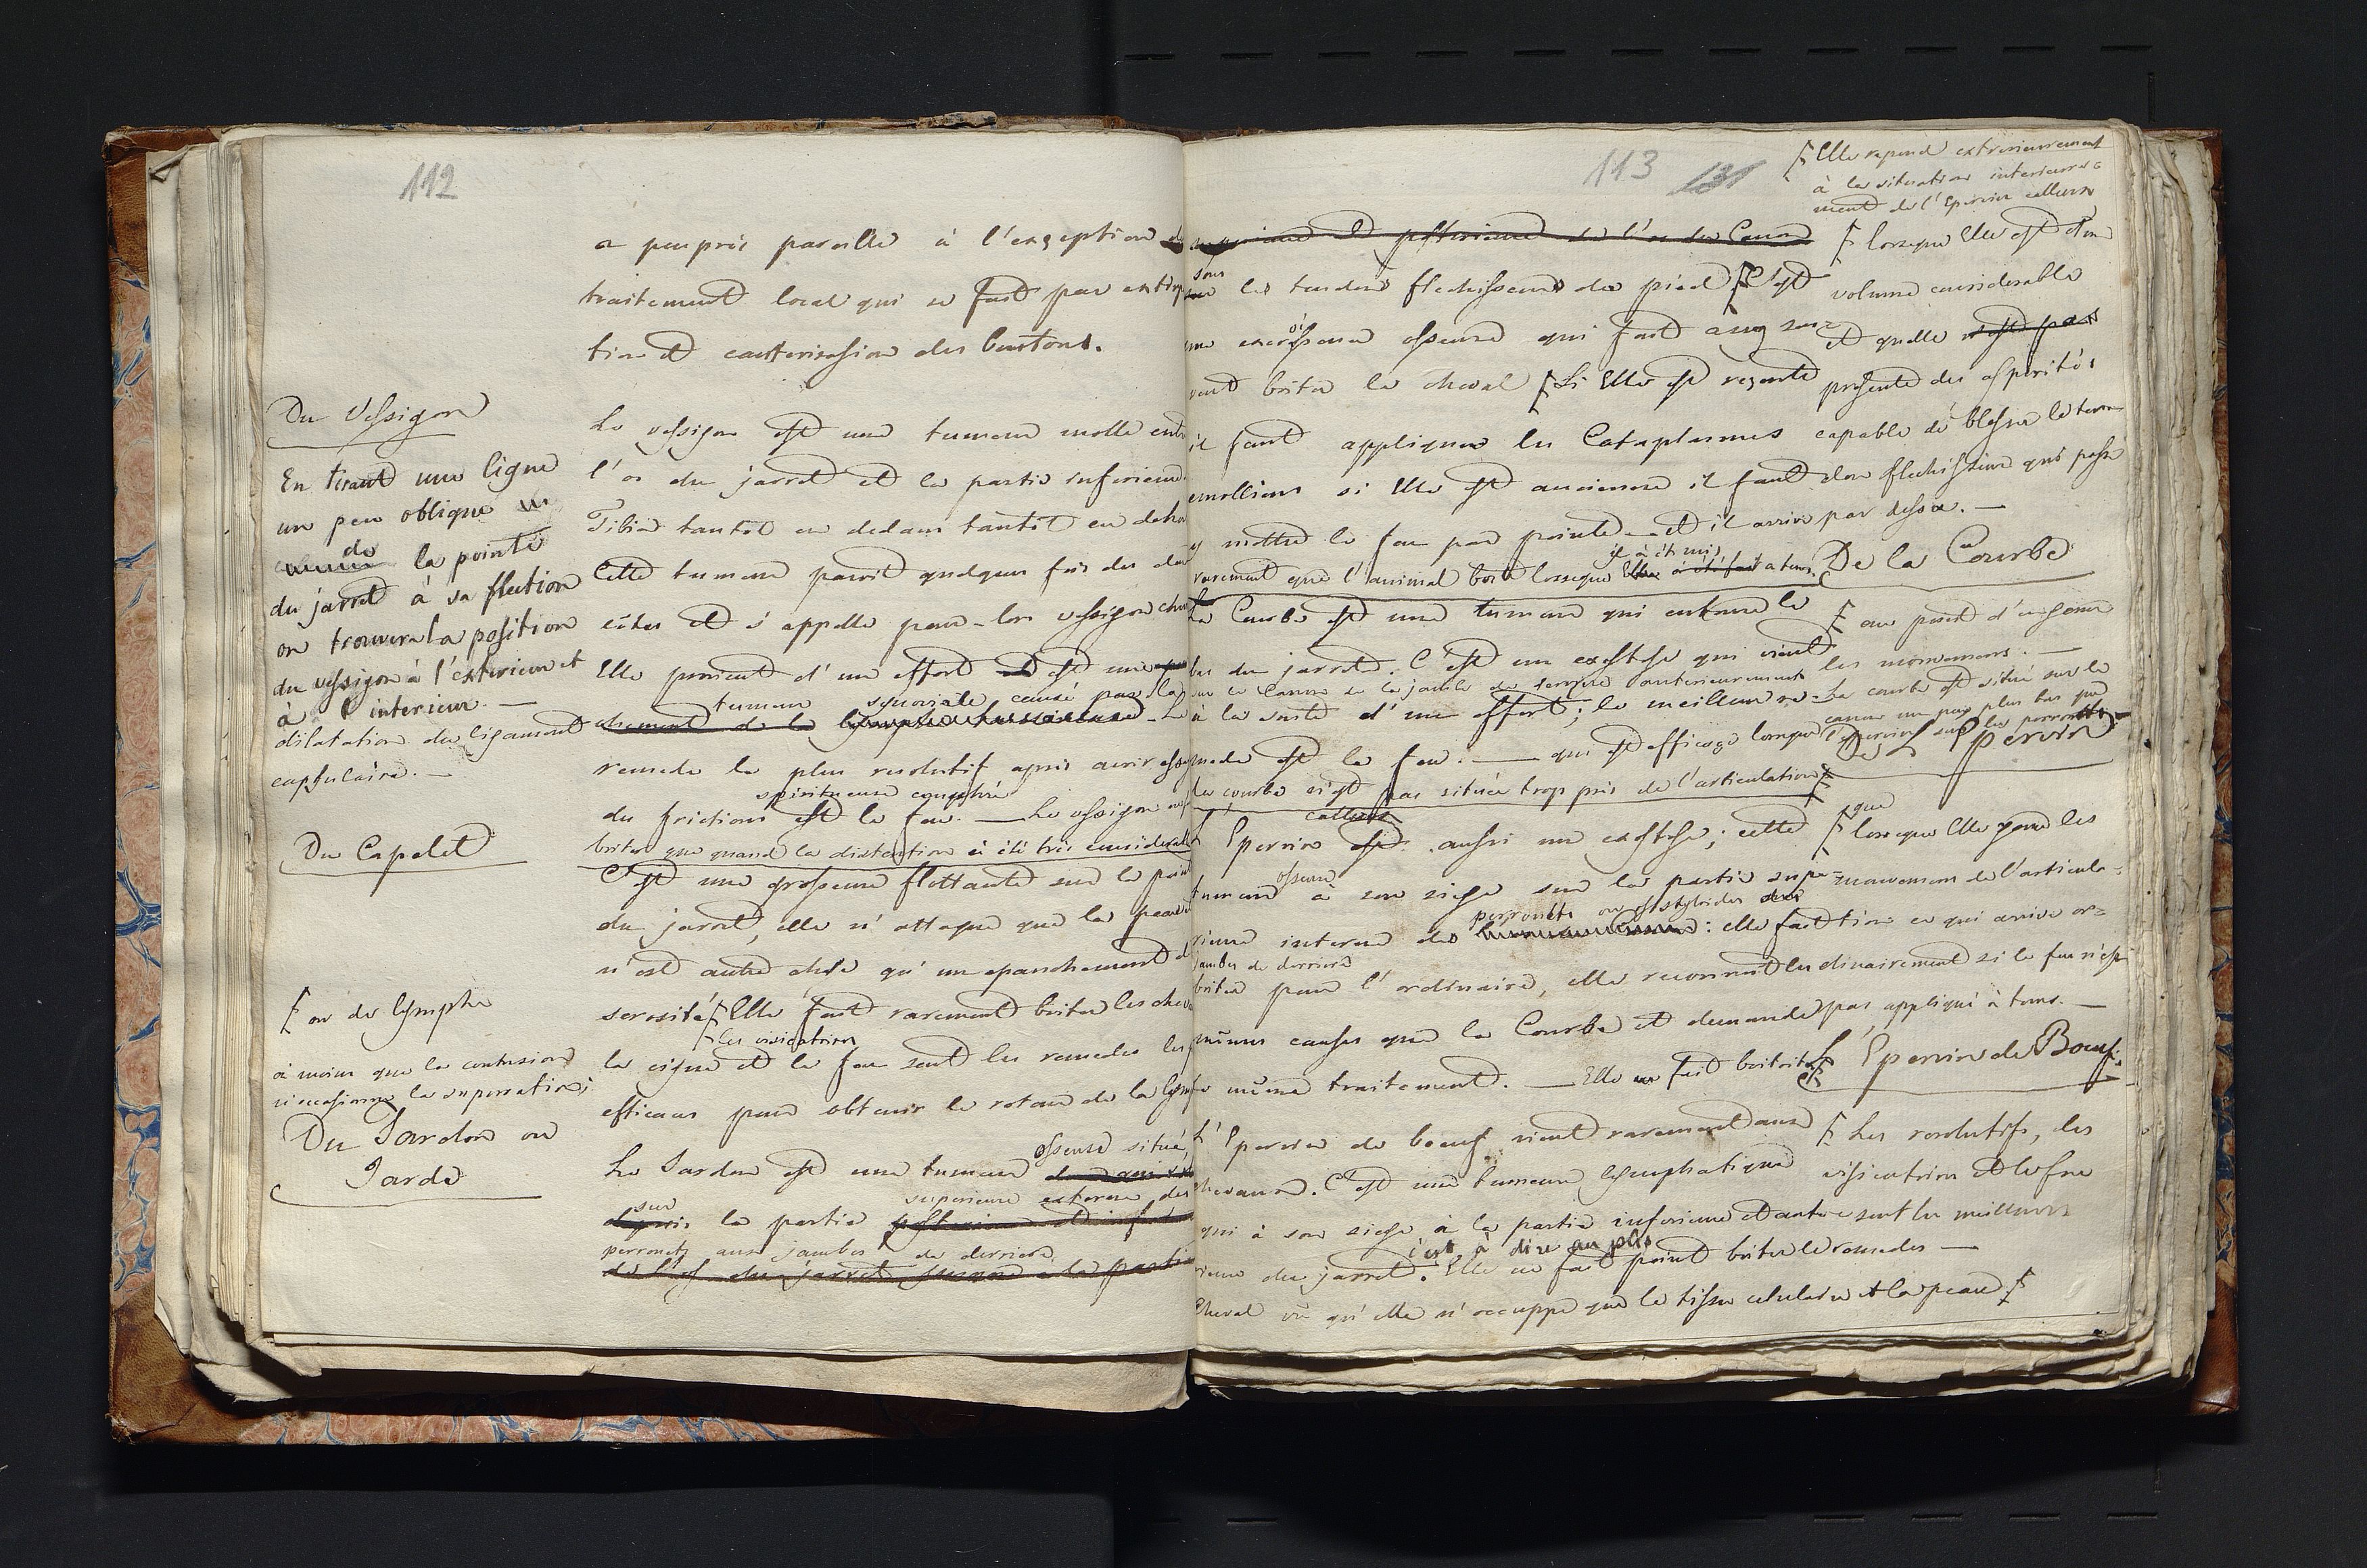 112
a peu près pareille à l'exception du
traitement local qui se fait par extirpa
tion et cautterisasion des boutons.
Du Vessigon
Le vessigon est une tumeur molle entre
l'os du jarret et la partie inferieure
Tibia tantôt en dedans tantôt en deho
Cette tumeur paroit quelques fois des deux
côtés et s'appelle pour-lors vessigon chev
Elle provient d'un effort et est une
tumeur synoviale causé par la
dilatation du ligament
capsulaire. —
remede le plus resolutif après avoir essay
spiritueuse camphré
des frictions est le feu. — Le vessigon ne f
boiter que quand la distention à été très considerable
En tirant une ligne
un peu oblique
de la pointe
du jarret à sa flection
on trouvera la position
du vessigon à l'exterieur et
à l'interieur. —
Du Capelet
C'est une grosseur flottante sur la point
du jarret, elle n'attaque que la peau
n'est autre chose qu'un epanchement de
serosité Elle fait rarement boiter les chev
les vissicatoires
la cigue et le feu sont les remedes les p
efficaces pour obtenir le retour de la lymp
ou de lymphe
à moins que la contusion
n'occasionne la supuration
Du Jardon ou
Jarde
Le Jardon est une tumeur osseuse située
sur la partie superieure externe des
perronets aux jambes de derriere
113 131
Elle repond exterieurement
à la situation interieure-
ment de l'Epervin calleux
superieure et posterieure de l'os du Canon
sous les tendons flechisseurs du pied C'est
une excroissence osseuse qui fait assez sou-
vent boiter le cheval Si Elle est resente
il faut appliquer les Cataplasmes
emolliens si Elle est ancienne il faut
y mettre le feu par pointe — et il arrive
rarement que l'animal boite lorsque il à été mis a tems.
lorsque Elle est d'un
volume considerable
et quelle
presente des asperités
capable de blesser le tendon
flechisseur qui passe
par dessu. —
De la Courbe
La Courbe est une tumeur qui entoure le
bas du jarret. C'est un exostose qui vient
sur le Canon de la jambe de derriere anterieurement
à la suite d'un effort; le meilleur re-
mede est le feu. — qui est efficace lorsque
la courbe n'est pas située trop près de l'articulation
au point d'en gener
les mouvemens. —
La courbe est situé sur le
canon un peu plus bas que
l'epervin sur les perronets
De L'Epervin
L'Epervin calleux est aussi un exostose; cette
tumeur osseuse à son siege sur la partie supe-
rieure interne des perronets ou os styloides des
jambes de derriere : elle fait
boiter pour l'ordinaire, elle reconnait les
mêmes causes que la Courbe et demande
le même traitement. — Elle fait boiter
lorsque que Elle gene les
mouvemens de l'articula-
tion ce qui arrive or-
dinairement si le feu n'est
pas appliqué à tems. —
L'Epervin de Boeuf.
L'Epervin de boeuf vient rarement aux
chevaux. C'est une tumeur lymphatique
qui à son siege à la partie inferieure et ante-
rieure du jarret. c'est à dire au plis Elle ne fait point boiter le
cheval vû qu'elle n'occuppe que le tissu celulaire et la peau
Les resolutifs, les
vissicatoires et le feu
sont les meilleurs
remedes —